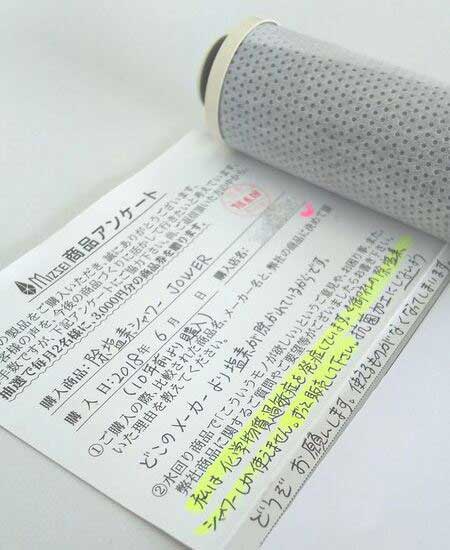 MIZSEI 商品アンケート
の製品をご購入いただき、誠にありがとうございます。
名様の声を、今後の商品づくりに活かして行きたいと考えています。
数ですが、下記アンケートにご協力下さい。
抽選で毎月2名様に、3,000円分の商品券を贈ります。
購入商品: 除塩素シャワー JOWER
購入日: 2018年 6月 日 購入店名:
(10年前より購入)
①ご購入の際、比較された商品名、メーカー名と、弊社の商品に決めて頂
いた理由を教えてください。
どこのメーカーより塩素が除かれているからです。
②水回り商品で「こういうモノが欲しい」というご意見や、お困り事、また
弊社商品に関するご質問やご要望等がございましたら、お書き下さい。
私は化学物質過敏症を発症しています。
シャワーしか使えません。ずっと販売して下さい。抗菌加工にしないよう
どうぞお願いします。使えるものがなくなってしまいます。